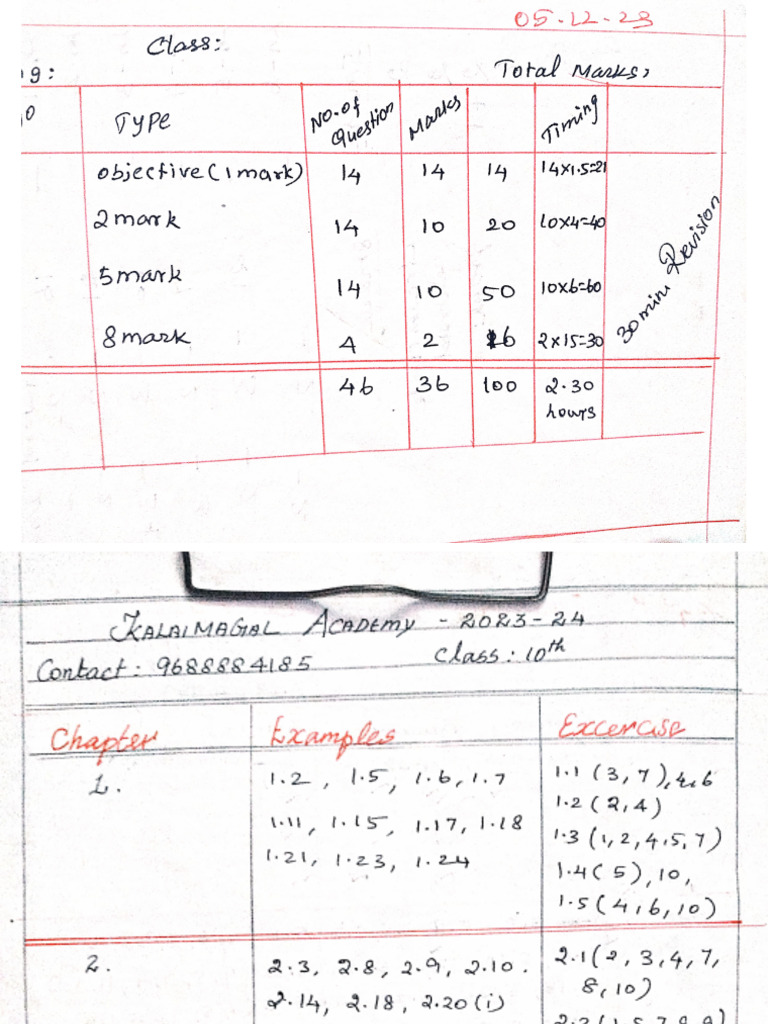 05.12.23
Class:
g: Total Marks:
TYPE No. of Question Marks Timing
objective (1 mark) 14 14 14 14×1.5=21
2 mark 14 10 20 10×4=40
5 mark 14 10 50 10×6=60
8 mark 4 2 16 2×15=30
30 mini Revision
46 36 100 2.30 hours
KALAIMAGAL ACADEMY - 2023-24
Contact: 9688884185 Class: 10th
Chapter Examples Excercise
1. 1.2, 1.5, 1.6, 1.7 1.1 (3, 7), 4, 6
1.2 (2, 4)
1.11, 1.15, 1.17, 1.18 1.3 (1, 2, 4, 5, 7)
1.21, 1.23, 1.24 1.4 (5), 10,
1.5 (4, 6, 10)
2. 2.3, 2.8, 2.9, 2.10. 2.1 (2, 3, 4, 7,
8, 10)
2.14, 2.18, 2.20 (i)